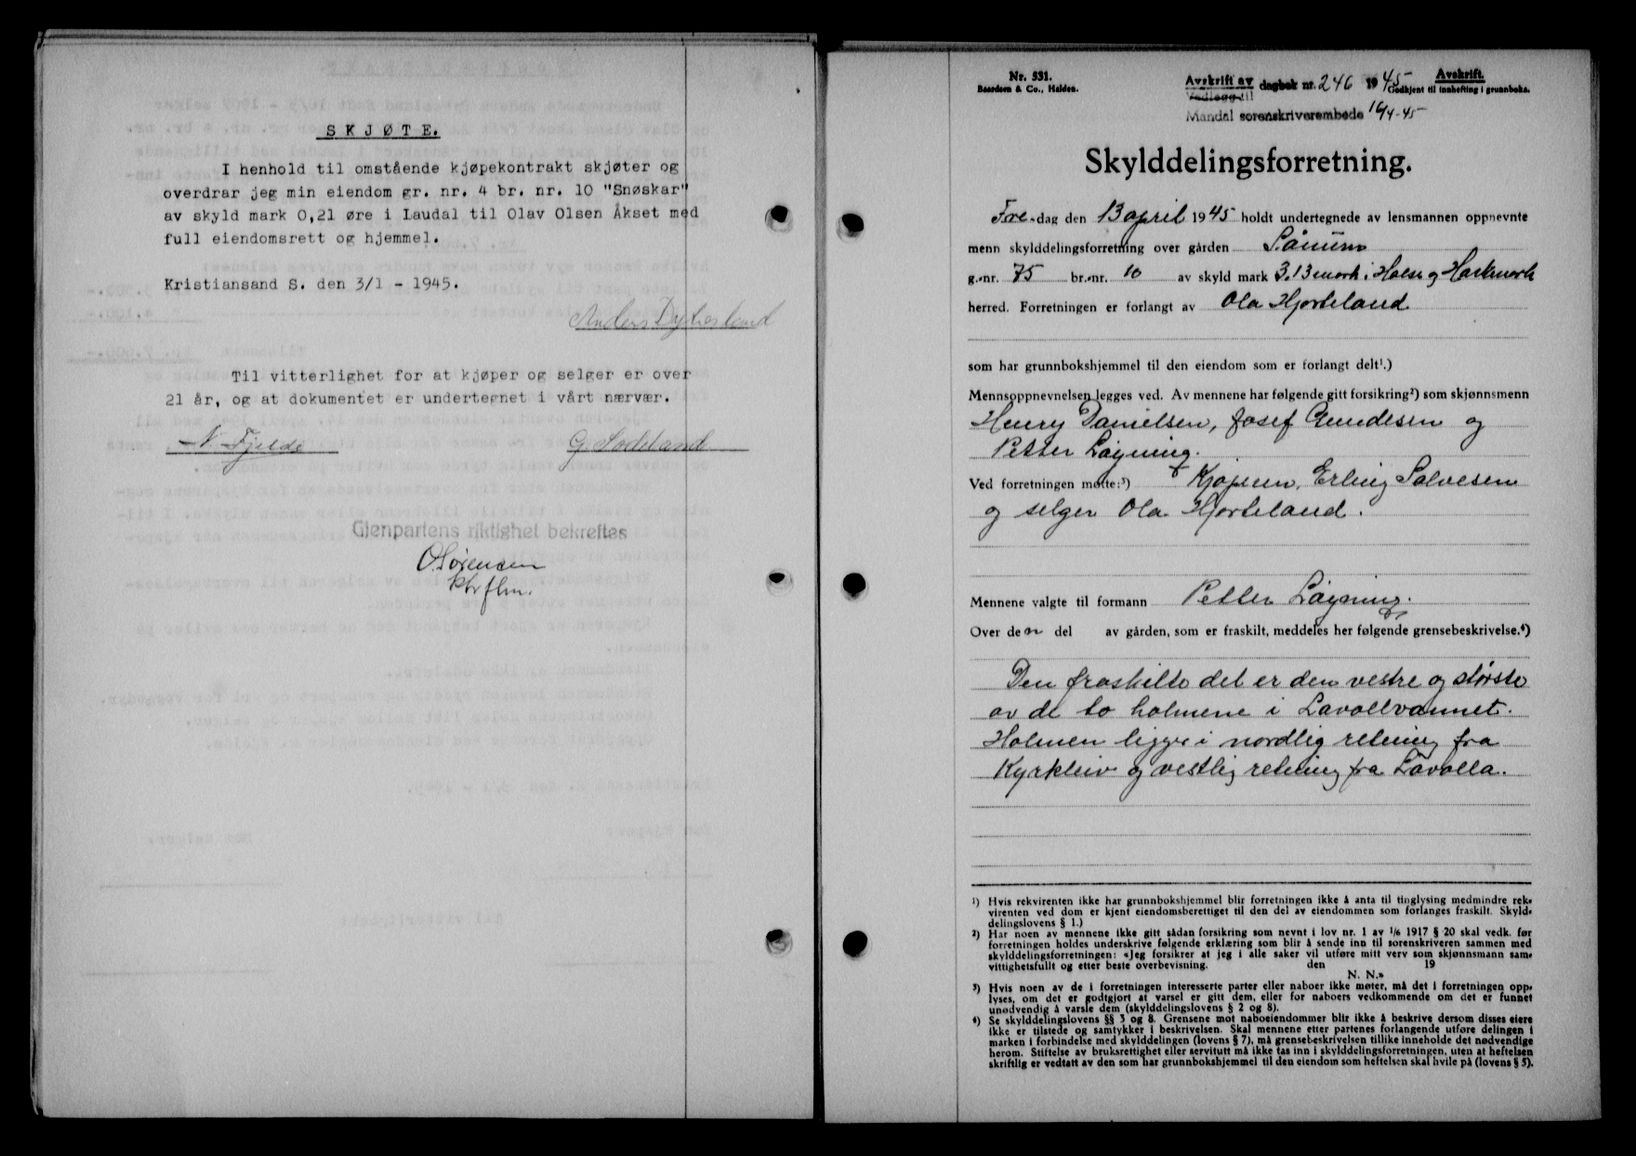 SKJØTE.
I henhold til omstående kjøpekontrakt skjøter og
overdrar jeg min eiendom gr. nr. 4 br. nr. 10 "Snøskar"
av skyld mark 0,21 øre i Laudal til Olav Olsen Åkset med
full eiendomsrett og hjemmel.
Kristiansand S. den 3/1 - 1945.
Anders Dykesland
Til vitterlighet for at kjøper og selger er over
21 år, og at dokumentet er undertegnet i vårt nærvær.
N. Fjelde
G. Sodeland
Gjenpartens riktighet bekreftes
O. Sørensen
Nr. 531.
Baardsen & Co., Halden.
Avskrift av dagbok nr. 246 1945
Vedlegg til
Mandal sorenskriverembede 16/4-45
Avskrift.
Godkjent til innhefting i grunnboka.
Skylddelingsforretning.
Fre-dag den 13 april 1945 holdt undertegnede av lensmannen oppnevnte
menn skylddelingsforretning over gården Sånum
g.-nr. 75 br.-nr. 10 av skyld mark 3.13 mork i Halse og Harkmark
herred. Forretningen er forlangt av Ola Hjorteland
som har grunnbokshjemmel til den eiendom som er forlangt delt¹.)
Mennsoppnevnelsen legges ved. Av mennene har følgende gitt forsikring²) som skjønnsmenn
Henry Danielsen, Josef Gundesen og
Petter Løyning.
Ved forretningen møtte:³) Kjøperen, Erling Salvesen
og selger Ola Hjorteland.
Mennene valgte til formann Petter Løyning.
Over den del av gården, som er fraskilt, meddeles her følgende grensebeskrivelse.⁴)
Den fraskilte del er den vestre og største
av de to holmene i Lavollvannet.
Holmen ligger i nordlig retning fra
Kyrkleiv og vestlig retning fra Lavolla.
¹) Hvis rekvirenten ikke har grunnbokshjemmel blir forretningen ikke å anta til tinglysing medmindre rek-
virenten ved dom er kjent eiendomsberettiget til den del av eiendommen som forlanges fraskilt. Skyld-
delingslovens § 1.)
²) Har noen av mennene ikke gitt sådan forsikring som nevnt i lov nr. 1 av 1/6 1917 § 20 skal vedk. før
forretningen holdes underskrive følgende erklæring som blir å sende inn til sorenskriveren sammen med
skylddelingsforretningen: «Jeg forsikrer at jeg i alle saker vil utføre mitt verv som skjønnsmann sam-
vittighetsfullt og etter beste overbevisning. den 19
N. N.»
³) Hvis noen av de i forretningen interesserte parter eller naboer ikke møter, må det i forretningen opp-
lyses, om det er godtgjort at varsel er gitt dem, eller for naboers vedkommende om det er funnet
unødvendig å varsle dem (skylddelingslovens § 2 og 8).
⁴) Se skylddelingslovens §§ 3 og 8. Grensene mot naboeiendommer blir ikke å beskrive dersom disses eiere
ikke er tilstede og samtykker i beskrivelsen. Skal mennene etter partenes forlangende utføre delingen i
marken i forbindelse med skylddelingen (lovens § 7), må grensebeskrivelsen tillike inneholde det nødvendige
herom. Stiftelse av bruksrettighet eller servitutt må ikke tas inn i skylddelingsforretningen, uten at heftelsen
skriftlig er vedtatt av den som har grunnbokshjemmel til den eiendom som heftelsen skal hvile på (lovens § 5).